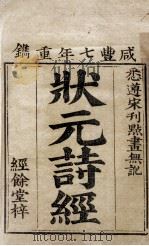 咸豐七年重鐫
悉遵宋刊點畫無訛
狀元詩經
經餘堂梓